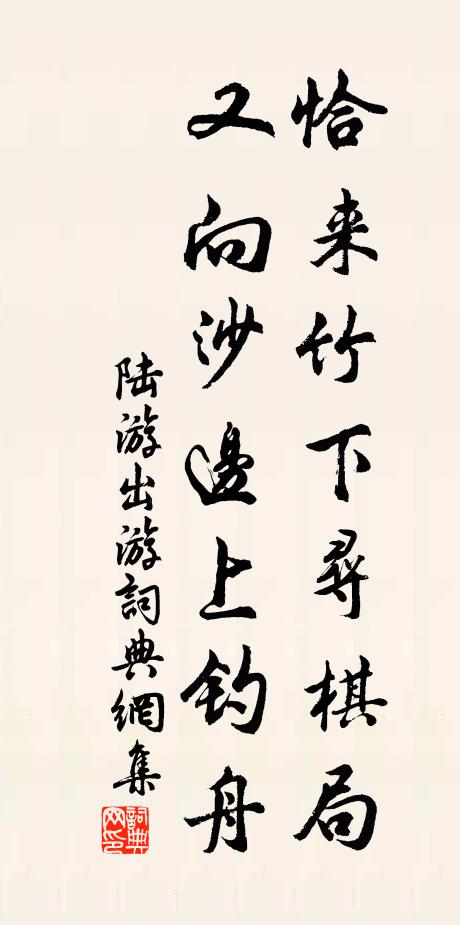 恰来竹下尋棋局
又向沙邊上釣舟
陆游出游詞典網集
詞典网印